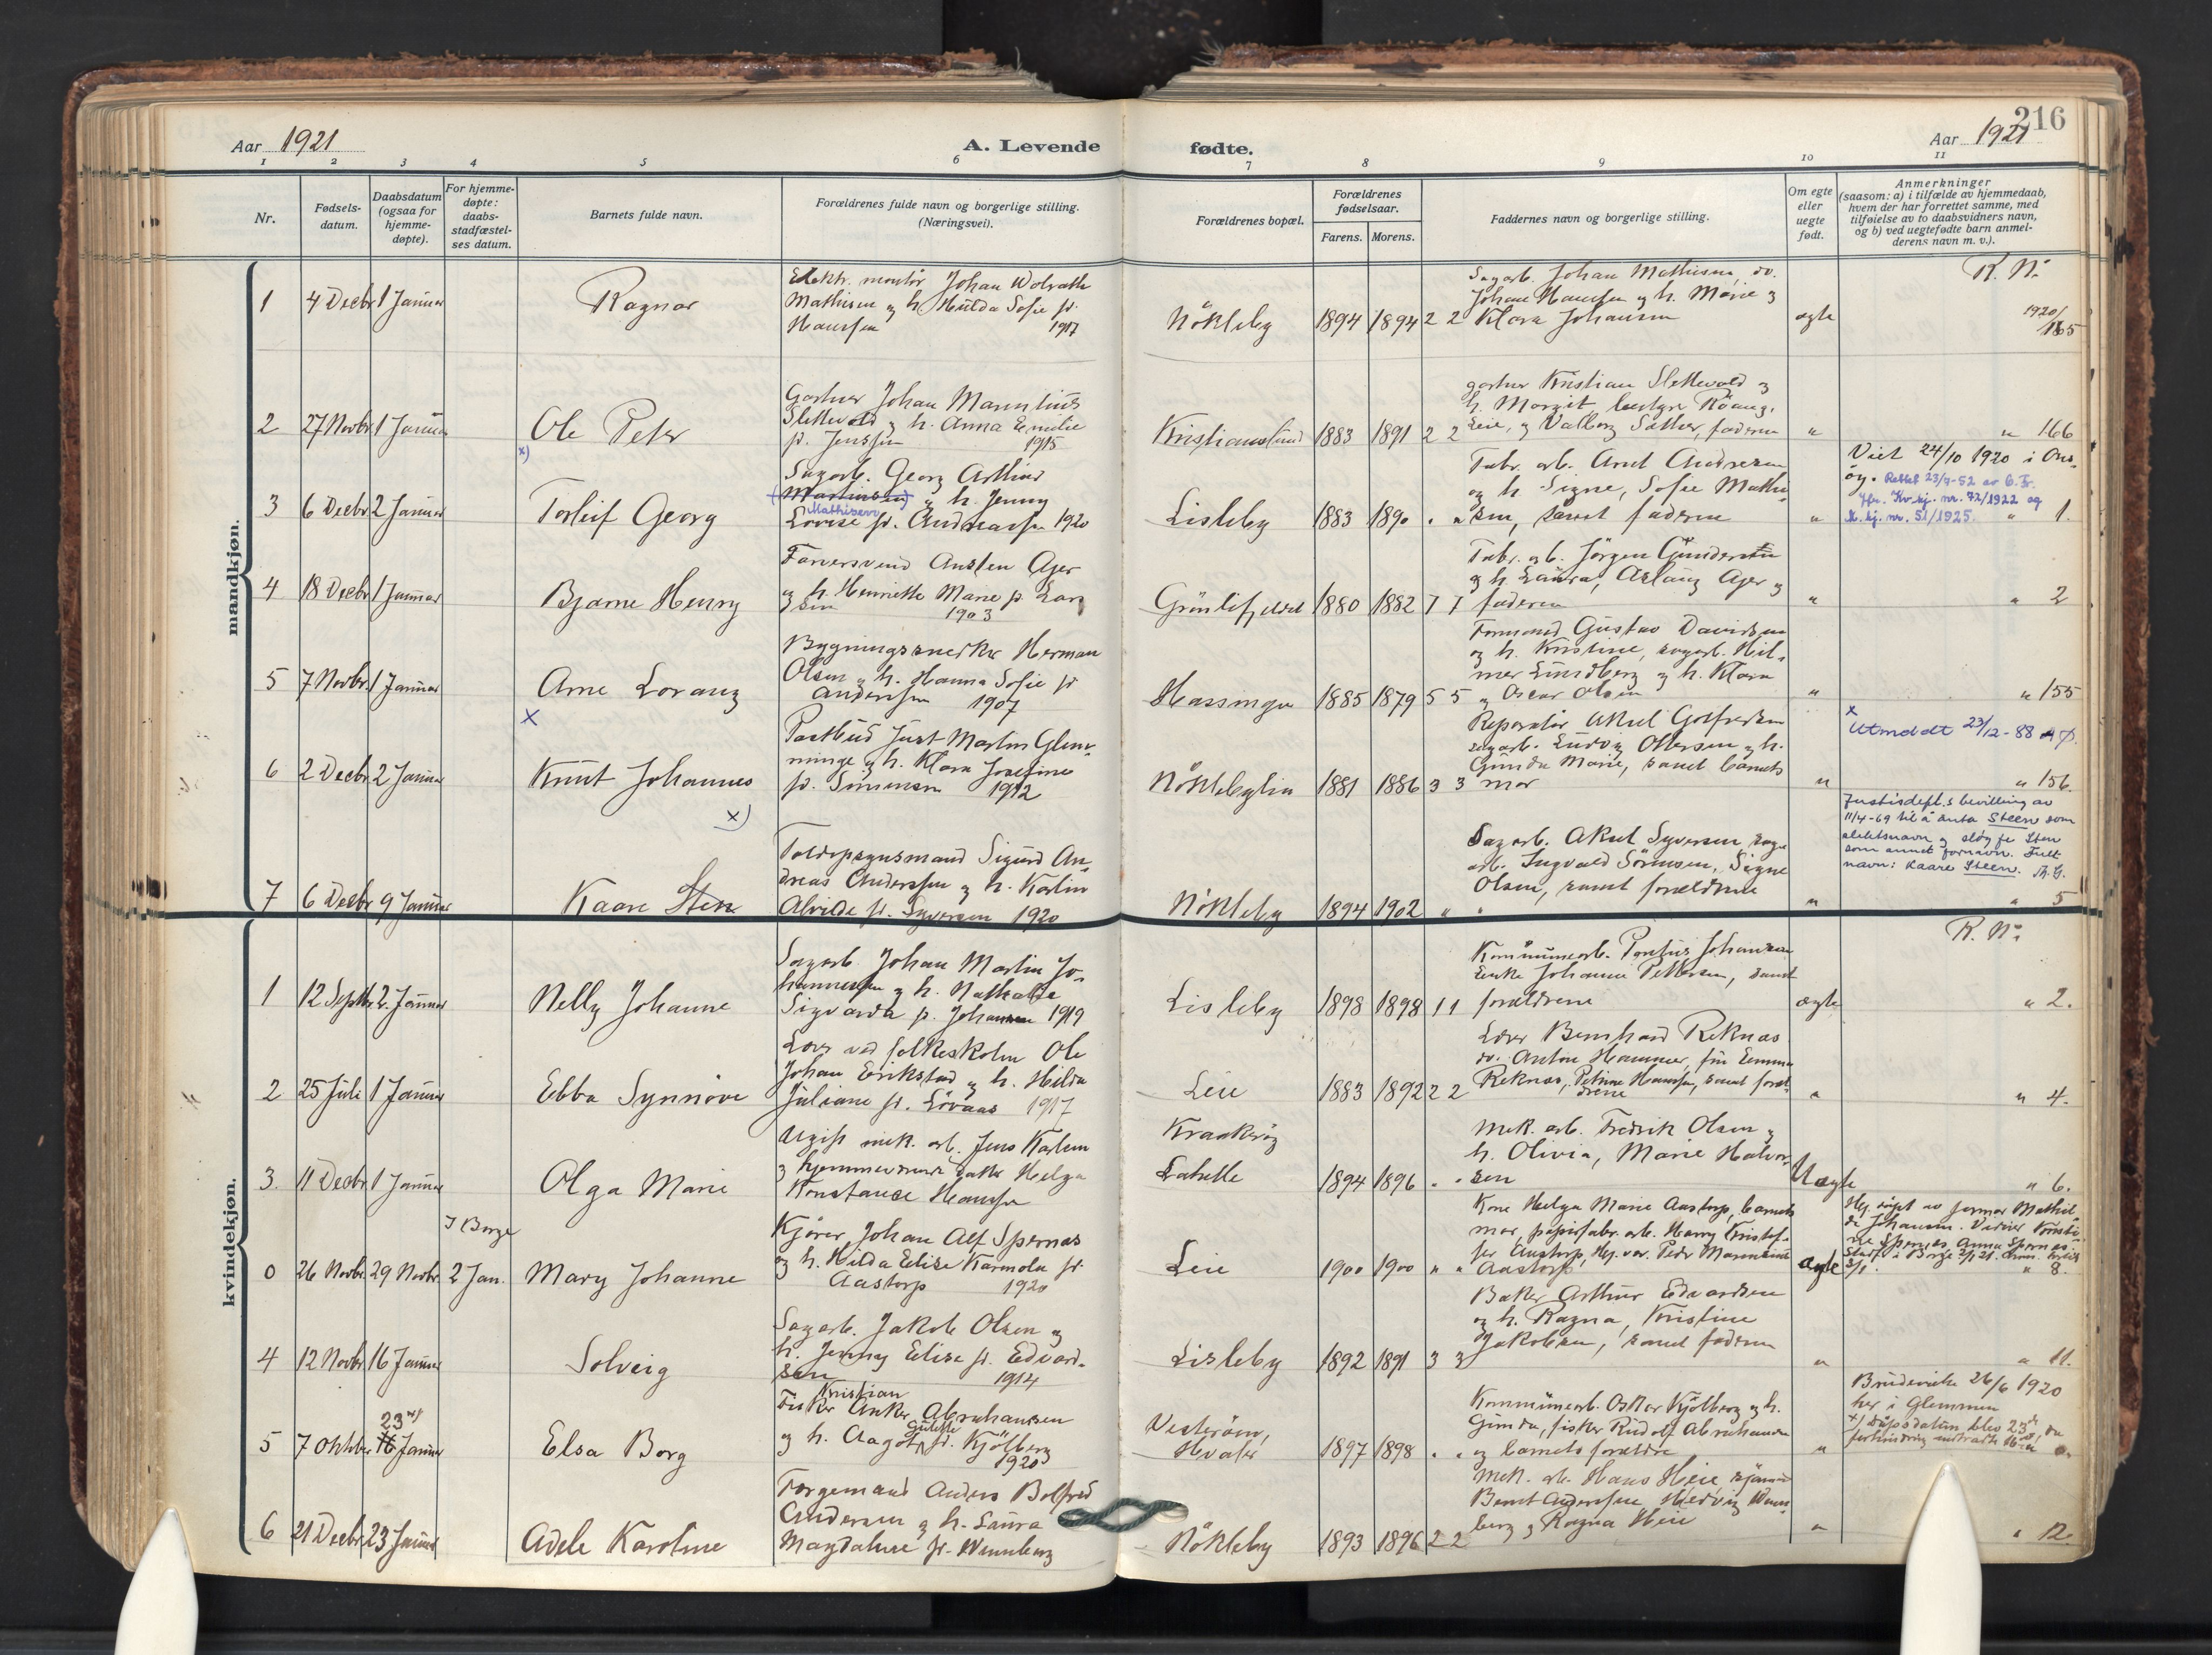 216
Aar 1921
A. Levende
fødte.
Aar 1921
1 2 3 4 5 6 7 8 9 10 11
Nr.
Fødsels-
datum.
Daabsdatum
(ogsaa for
hjemme-
døpte).
For hjemme-
døpte:
daabs-
stadfæstel-
ses datum.
Barnets fulde navn.
Forældrenes fulde navn og borgerlige stilling.
(Næringsvei).
Forældrenes bopæl.
Forældrenes
fødselsaar.
Farens. Morens.
Faddernes navn og borgerlige stilling.
Om egte
eller
uegte
født.
Anmerkninger
(saasom: a) i tilfælde av hjemmedaab,
hvem der har forrettet samme, med
tilføielse av to daabsvidners navn,
og b) ved uegtefødte barn anmel-
derens navn m. v.).
mandkjøn.
1 4 Decbr 1 Januar
Ragnar
Elektr. montör Johan Wolrath
Mathisen og h. Hulda Sofie f.
Hanssen 1917
Nökleby 1894 1894 2 2
Sagarb. Johan Mathisen, do.
Johan Hanssen og h. Marie og
Klara Johansen
ægte
R. No
1920/
165
2 27 Novbr 1 Januar
Ole Peter
Gartner Johan Marinius
Slettevold og h. Anna Emilie
f. Jenssen 1915
Kristianslund 1883 1891 2 2
gartner Kristian Slettevold og
h. Margit,
Leie, og Valborg Sæther, faderen
" " 166
x)
3 6 Decbr 2 Januar
Torleif Georg
Sagarb. Georg Arthur
(Martinsen) og h. Jenny
Mathisen
Lovise f. Andreassen 1920
Lisleby 1883 1890 " "
Fabr. arb. Arnt Andresen
og h. Signe, Sofie Mathi-
sen, samt faderen
"
Viet 24/10 1920 i Ons-
öy. Rettet 23/7-52 av
Jfr. Kv.kj. nr. 72/1922 og
M. kj. nr. 51/1925. " 1.
4 18 Decbr 1 Januar
Bjarne Henry
Farversvend Austen Ajer
og h. Henriette Marie f. Lar-
sen 1903
Grönlifjeld 1880 1882 7 7
Fabr. arb. Jörgen Gundersen
og h. Laura, Aslaug Ajer og
faderen
" " 2
5 7 Novbr. 1 Januar
Arne Lorang
Bygningssnekker Herman
Olsen og h. Hanna Sofie f.
Anderssen 1907
Hassingen 1885 1879 5 5
Formand Gustav Davidsen
og h. Kristine, sagarb. Hil-
mer Lundberg og h. Klara
og Oscar Olsen
" " 155
x
6 2 Decbr 2 Januar
Knut Johannes
Postbud Just Martin Glem-
minge og h. Klara Josefine
f. Simensen 1912
Nöklebylia 1881 1886 3 3
Reparatör Aksel Gotfredsen
sagarb. Ludvig Ottersen og h.
Gunda Marie, samt barnets
mor
"
x
Utmeldt 23/12-88
" 156.
x)
7 6 Decbr 9 Januar
Kaare Sten
Toldopsynsmand Sigurd An-
dreas Anderssen og h. Karlin
Alvilde f. Syversen 1920
Nökleby 1894 1902 " "
Sagarb. Aksel Syversen, sag-
arb. Ingvald Sörensen, Signe
Olsen, samt forældrene
"
Justisdept.s bevilling av
11/4-69 til å anta Steen som
slektsnavn og sløyfe Sten
som annet fornavn. Fullt
navn: Kaare Steen.
" 5
kvindekjøn.
R. No
1 12 Septbr 2. Januar
Nelly Johanne
Sagarb. Johan Martin Jo-
hannessen og h. Nathalie
Sigvarda f. Johansen 1919
Lisleby 1898 1898 1 1
Kommunearb. Pontus Johansen
Enke Johanne Pettersen, samt
forældrene
ægte " 2.
2 25 Juli 1 Januar
Ebba Synnöve
Lærer ved folkeskolen Ole
Johan Erikstad og h. Hilda
Juliane f. Lövaas 1917
Leie 1883 1892 2 2
Lærer Bernhard Reknas
do. Anton Hammer, fru Emma
Reknas, Petrine Hanssen, samt foræl-
drene
" " 4.
3. 11 Decbr 1 Januar
Olga Marie
Ugift mek. arb. Jens Karlsen
og hjemmeværende datter Helga
Konstance Hanssen
Kraakeröy
Labette 1894 1896 " "
Mek. arb. Fredrik Olsen og
h. Olivia, Marie Halvor-
sen
Uægte " 6.
0 26 Novbr. 29 Novbr. 2 Jan.
I Borge
Mary Johanne
Kjörer Johan Alf Spernæs
og h. Hilda Elise Karmola f.
Aastorp 1920
Leie 1900 1900 " "
Kone Helga Marie Aastorp, barnets
mor, papirfabr. arb. Harry Kristof-
fer Aastorp, Hj. var. Peder Marensius
Aastorp
ægte
Hj. döpt av jormor Mathil-
de Johansen. Vidner Kristi-
ne Spernæs, Anna Spernæs.
Stadf. i Borge 2/1 21.
" 8.
4 12 Novbr 16 Januar
Solveig
Sagarb. Jakob Olsen og
h. Jenny Elise f. Edvard-
sen 1914
Lisleby 1892 1891 3 3
Baker Arthur Edvardsen
og h. Ragna, Kristine
Jakobsen, samt faderen
" " 11.
5 7 Oktober 23 x) 16 Januar
Elsa Borg
Kristian
Fisker Anker Abrahamsen
og h. Aagot Gulette f. Kjölberg
1920
Vesteröen,
Hvaler 1897 1898 " "
Kommunearb. Oskar Kjölberg og h.
Gunda, fisker Rudolf Abrahamsen
og barnets forældre
"
Brudeviede 26/6 1920
her i Glemmen
x) Daapsdatum blev 23de, da
forhindring indtraadte 16de
6 21 Decbr 23 Januar
Adele Karoline
Forgemand Anders Bolfred
Andersen og h. Laura
Magdalene f. Wennberg
Nökleby 1893 1896 2 2
Mek. arb. Hans Heie, sjömand
Bernt Anderssen, Hedvig Wenn-
berg og Ragna Heie
" " 12.